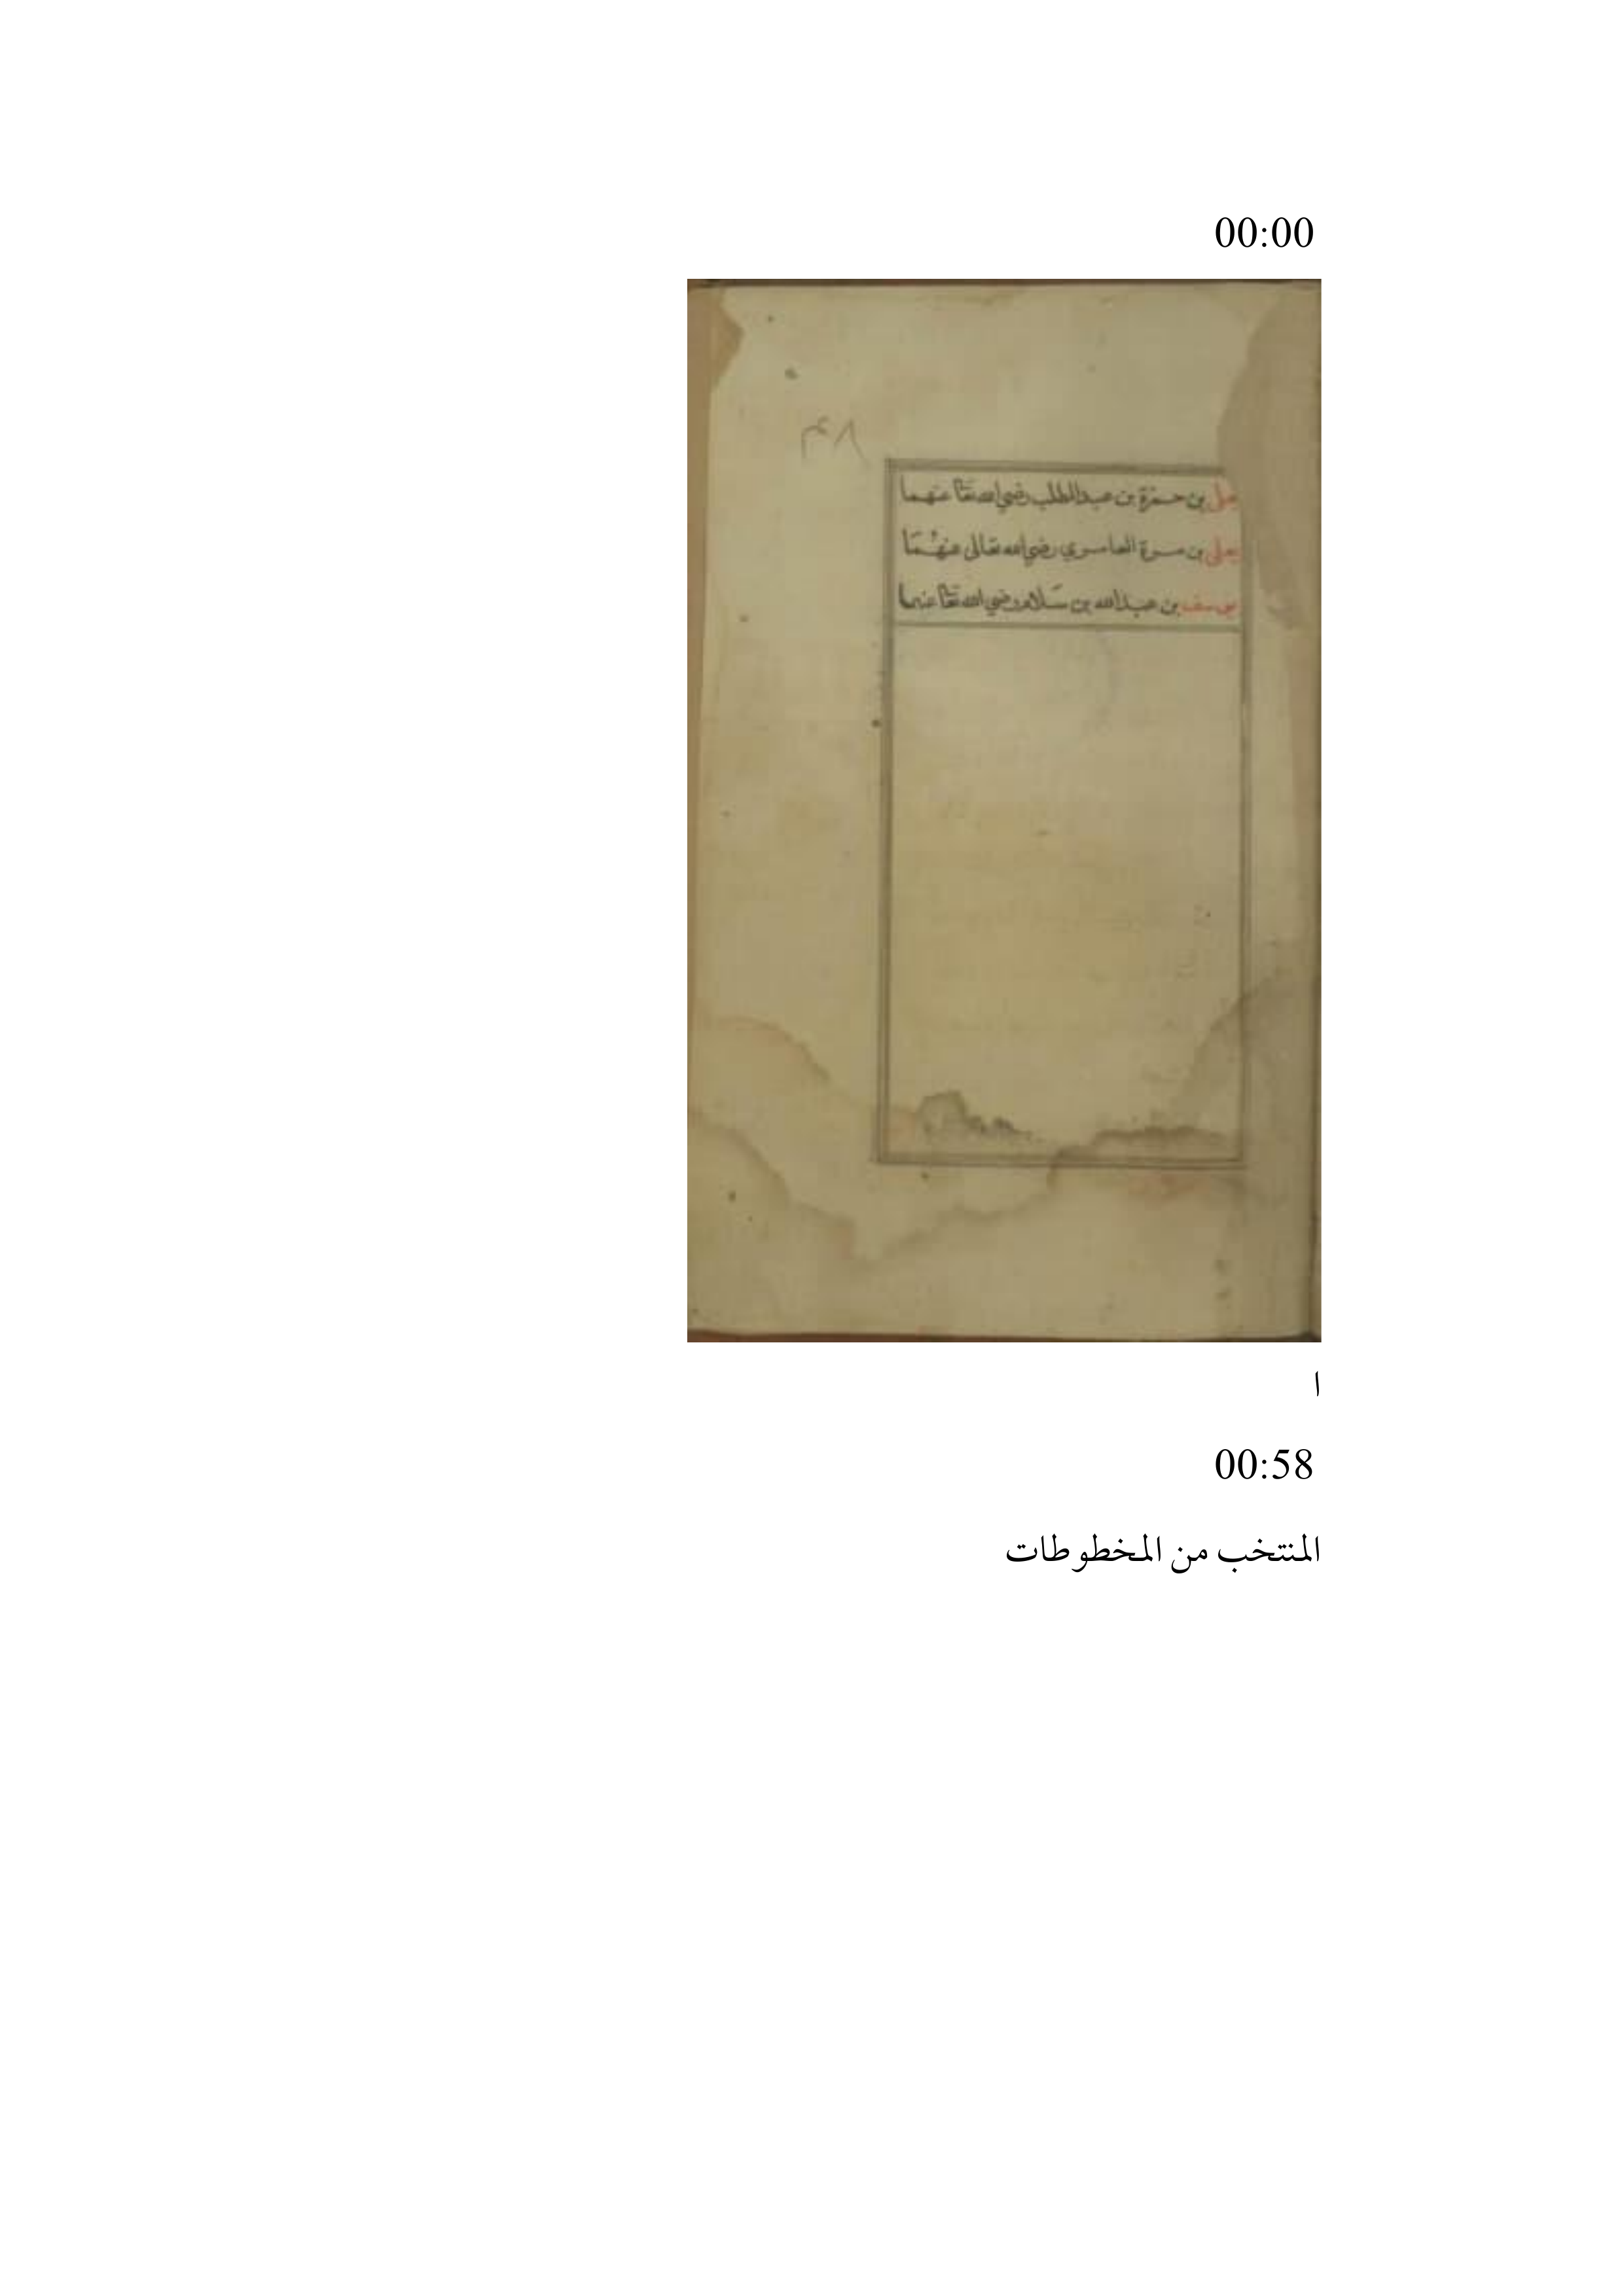 00:00
۴۸
يعلى بن حمزة بن عبدالمطلب رضي الله تعا عنهما
يعلى بن مرة العامري رضي الله تعالى عنهُمَا
يوسف بن عبدالله بن سَلام رضي الله تعا عنهما
ا
00:58
المنتخب من المخطوطات